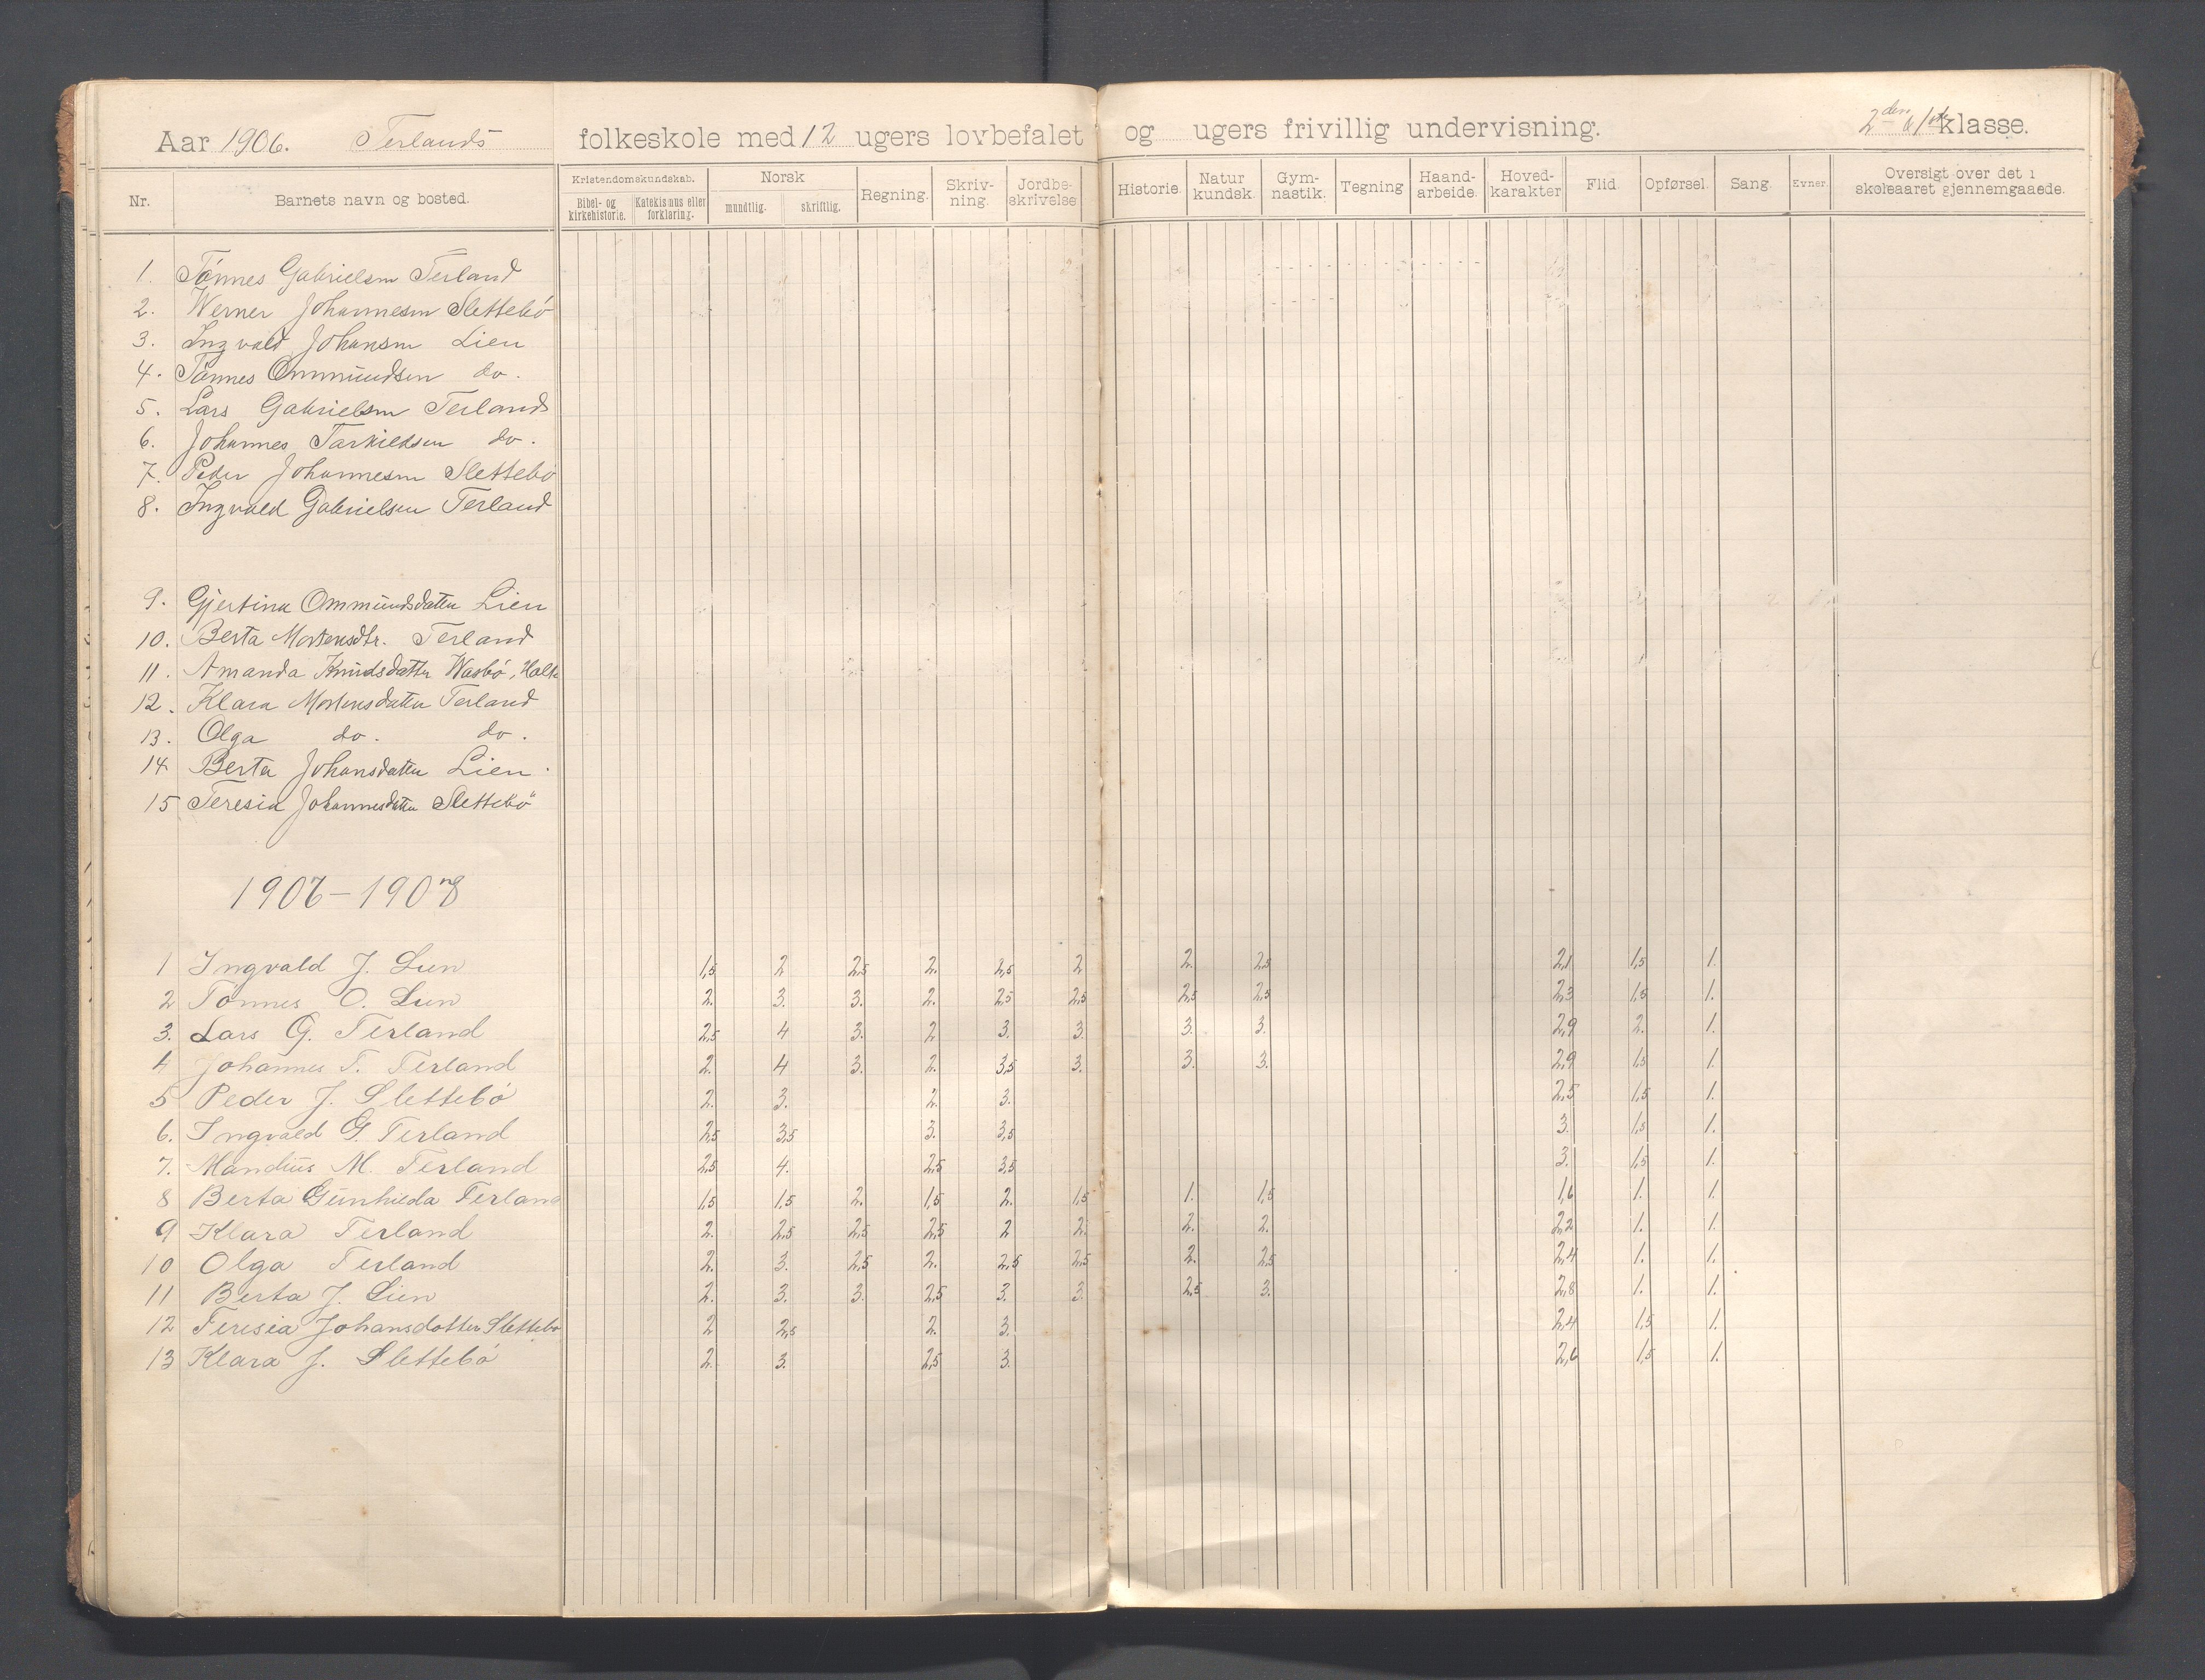 Aar 1906. Terlands folkeskole med 12 ugers lovbefalet og ugers frivillig undervisning. 2den klasse.
Nr. Barnets navn og bosted. Kristendomskundskab. Bibel- og kirkehistorie. Katekismus eller forklaring. Norsk mundtlig. skriftlig. Regning. Skriv-ning. Jordbe-skrivelse Historie. Natur kundsk. Gym-nastik. Tegning Haand-arbeide. Hoved-karakter Flid. Opførsel. Sang. Evner. Oversigt over det i skoleaaret gjennemgaaede.
1. Tönnes Gabrielsen Terland
2. Werner Johannesen Slettebö
3. Ingvald Johansen Lien
4. Tönnes Ommundsen do.
5. Lars Gabrielsen Terland
6. Johannes Tarkildsen do.
7. Peder Johannesen Slettebö
8. Ingvald Gabrielsen Terland
9. Gjertina Ommundsdatter Lien
10. Berta Mortensdtr. Terland
11. Amanda Knudsdatter
12. Klara Mortensdatter Terland
13. Olga do. do.
14 Berta Johansdatter Lien
15 Teresia Johannesdatter Slettebö
1 Ingvald J. Lien 1,5 2 2,5 2. 2,5 2 2. 2,5 2,1 1,5 1.
2 Tönnes O. Lien 2. 3. 3. 2. 2,5 2,5 2,5 2,5 2,3 1,5 1.
3. Lars G. Terland 2,5 4 3. 2 3. 3. 3. 3. 2,9 2. 1.
4 Johannes T. Terland 2. 4 3. 2. 3,5 3. 3. 3. 2,9 1,5 1.
5 Peder J. Slettebö 2. 3. 2. 3. 2,5 1,5 1.
6. Ingvald G. Terland 2,5 3,5 3. 3,5 3. 1,5 1.
7. Mandius M. Terland 2,5 4. 2,5 3,5 3. 1,5 1.
8 Berta Gunhilda Terland 1,5 1,5 2. 1,5 2. 1,5 1. 1,5 1,6 1. 1.
9 Klara Terland 2. 2,5 2,5 2,5 2 2. 2. 2. 2,2 1. 1.
10 Olga Terland 2. 3. 2,5 2. 2,5 2,5 2. 2,5 2,4 1. 1.
11 Berta J. Lien 2. 3. 3. 2,5 3. 3. 2,5 3. 2,8 1. 1.
12 Teresia Johansdotter Slettebö 2 2,5 2. 3. 2,4 1,5 1.
13 Klara J. Slettebö 2. 3. 2,5 3. 2,6 1,5 1.